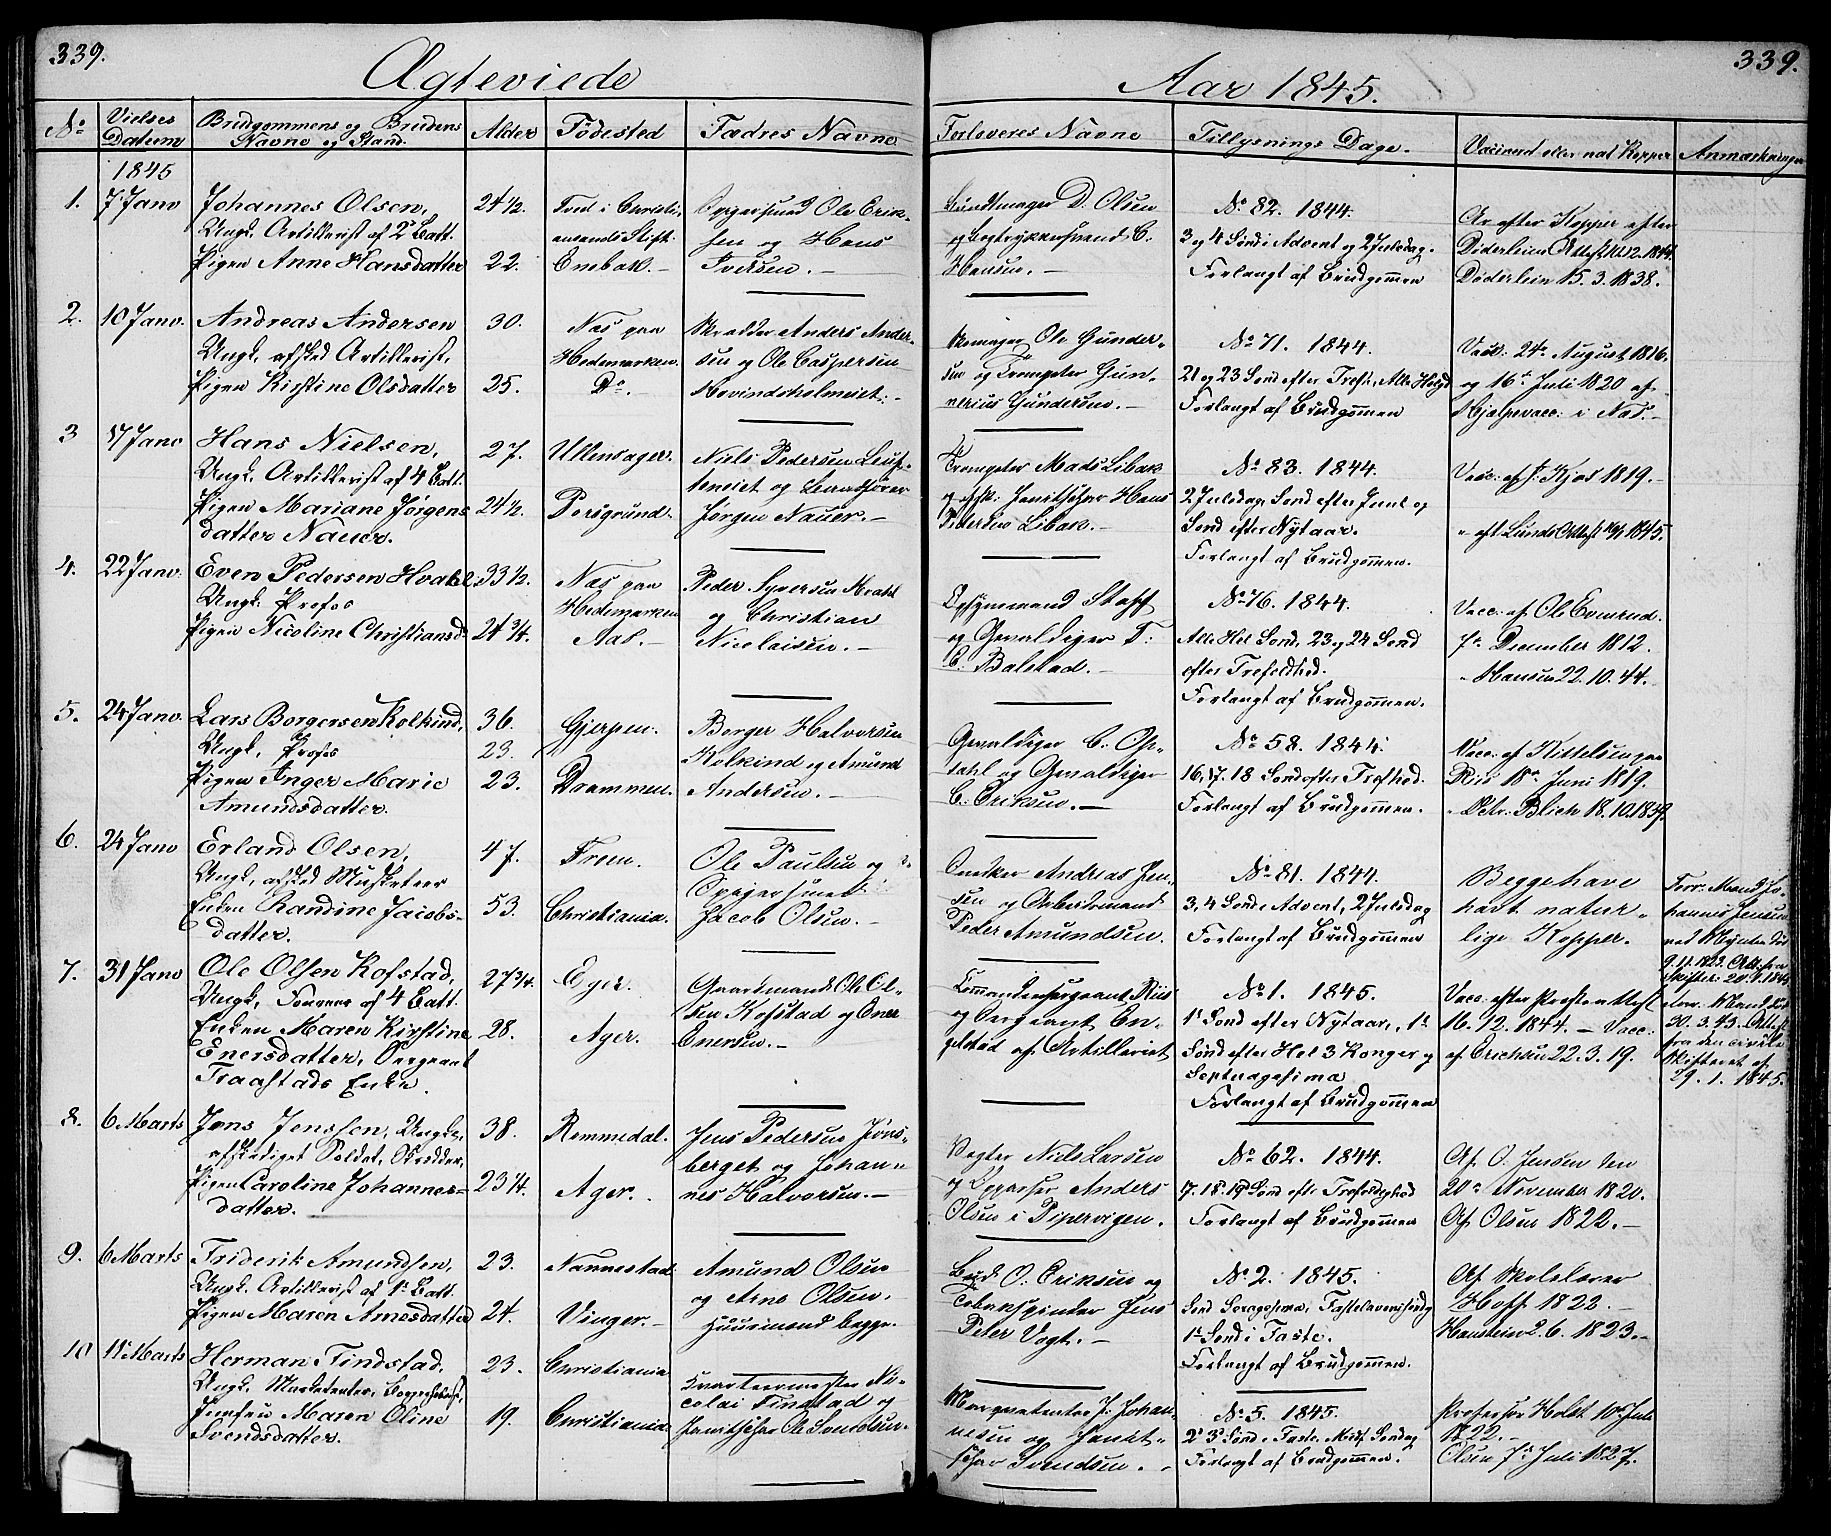 339.
Ægteviede
Aar 1845.
339.
No
Vielses Datum
Brudgommens og Brudens Navne og Stand.
Alder
Fødested
Fædres Navne
Forloveres Navne
Tillysnings Dage.
Vaccinerd eller nat Kopper
Anmærkninger
1845
1.
7 Janv
Johannes Olsen,
Ungk. Artillerist af 2 Batt.
Pigen Anne Hansdatter
24½
22.
Christi-
ansands Stift.
Enebak.
Ole Erik-
sen og Hans
Iversen.
D. Olsen
og Bogtrykkersvend C.
Hansen.
No 82. 1844.
3 og 4 Sønd i Advent og 2 Juledag.
Forlangt af Brudgommen
Ar efter Kopper efter
Døderleins Attest 10.12.1844.
Døderlein 15.3.1838.
2.
10 Janv.
Andreas Andersen
Ungk. afsked Artillerist,
Pigen Kirstine Olsdatter
30.
25.
Næs paa
Hedemarken.
Do.
Skrædder Anders Ander-
sen og Ole Caspersen
Hovindsholmeiet.
Ole Gunder-
sen og Trompeter Gun-
nerius Gundersen.
No 71. 1844.
21 og 23 Sønd efter Tref. Alle Helgd
Forlangt af Brudgommen
Vacc. 24de August 1816.
og 16de Juli 1820 af
Hjelpevacc. i Næs.
3
17 Janv
Hans Nielsen,
Ungk. Artillerist af 4 Batt.
Pigen Mariane Jørgens
datter Nauer.
27.
24½
Ullensager.
Porsgrund.
Niels Pedersen
og
Jørgen Nauer.
Trompeter Mads Libak
og Hans
Pedersen Libak.
No 83. 1844.
2 Juledag, Sønd efter Juul og
Sønd efter Nytaar.
Forlangt af Brudgommen.
Vacc. af J. Kjos 1819.
" eft. Lunds Attest 1845.
4.
22 Janv.
Even Pedersen Hvahl
Ungk. Profos
Pigen Nicoline Christiansd.
33½.
24¾.
Næs paa
Hedemarken
Aal.
Peder Syversen Hvahl
og Christian
Nicolaisen.
Staff
og Gevaldiger T.
C. Balstad.
No 76. 1844.
Alle Hel Sønd, 23 og 24 Sønd
efter Trefoldhed.
Forlangt af Brudgommen.
Vacc. af Ole Evenrud.
7de December 1812.
" Hansen 22.10.44.
5.
24 Janv.
Lars Borgersen Kolkind,
Ungk, Profos
Pigen Inger Marie
Amundsdatter.
36.
23.
23.
Gjerpen.
Drammen.
Borger Halvorsen
Kolkind og Amund
Andersen.
Gevaldiger C. Op-
dahl og Gevaldiger
C. Eriksen.
No 58. 1844.
16, 17. 18 Sønd efter Trefhed.
Forlangt af Brudgommen.
Vacc. af Kittelsen paa
Riis 18de Juni 1819.
" Blich 18.10.1839.
6.
24 Janv
Erland Olsen,
Ungk, afsked Musketeer
Enken Randine Jacobs-
datter.
47.
53.
Troen.
Christiania.
Ole Paulsen og
Jacob Olsen.
Andreas Jen-
sen og Arbeidsmand
Peder Amundsen.
No 81. 1844.
3, 4 Sønd i Advent, 2 Juledag
Forlangt af Brudgommen
Begge have
havt natur-
lige Kopper.
Forr. Mand Jo-
hannes Jensen
9.11.1823. Att. fra
Skifter. 20.1.1845
7.
31 Janv
Ole Olsen Kofstad,
Ungk, Foureer af 4 Batt.
Enken Maren Kirstine
Enersdatter, Sergeant
Traastads Enke.
27¾.
28.
Eger.
Ager.
Gaardmand Ole Ol-
sen Kofstad og Ener
Enersen.
Commandeersergeant Riis
og Sergeant En-
gelstad af Artilleriet
No 1. 1845.
1' Sønd efter Nytaar, 1'
Sønd efter Hel 3 Konger og
Septuagesima
Forlangt af Brudgommen
Vacc. efter Præste Attest
16.12.1844. - Vacc.
af Erichsen 22.3.19.
30.3.43. Attest
fra den civile
Skifteret af
29.1.1845.
8.
6 Marts
Jens Jenssen, Ungk,
afskediget Soldat, Skrædder,
Pigen Caroline Johannes-
datter.
38.
23¼.
Rommedal.
Ager.
Jens Pedersen Jøns-
berget og Johan-
nes Halvorsen.
Vægter Niels Larsen
og Anders
Olsen i Pipervigen.
No 62. 1844.
17. 18. 19 Sønd efte Trefoldighed
Forlangt af Brudgommen
Af O. Jensen den
20de November 1820.
Af Olsen 1822.
9.
6 Marts
Friderik Amundsen,
Ungk. Artillerist af 1' Batt.
Pigen Maren Arnesdatter
23.
24.
Nannestad
Vinger.
Amund Olsen
og Arne Olsen.
Huusmænd begge.
Bud O. Eriksen og
Tobakspinder Jens
Peter Vogt.
No 2. 1845.
Sønd Sexagesima, Fastelavenssønd
1' Sønd i Faste.
Forlangt af Brudgommen.
Af Skolelærer
Hoff 1822.
Hansteen 2.6.1823.
10
11 Marts
Herman Findstad,
Ungk, Marketenter,
Jomfru Maren Oline
Svendsdatter.
23.
19.
Christiania
Christiania.
Kvarteermester Ni-
colai Finstad og
Janitschar Ole Svendsen.
Marquetenter P. Johan-
nesen og Janit-
schar Svendsen.
No 5. 1845.
2' 3' Sønd i Faste, Midf. Søndag
Forlangt af Brudgommen.
Professor Holst 10de Juli
1822.
Olsen 7de Juli 1827.